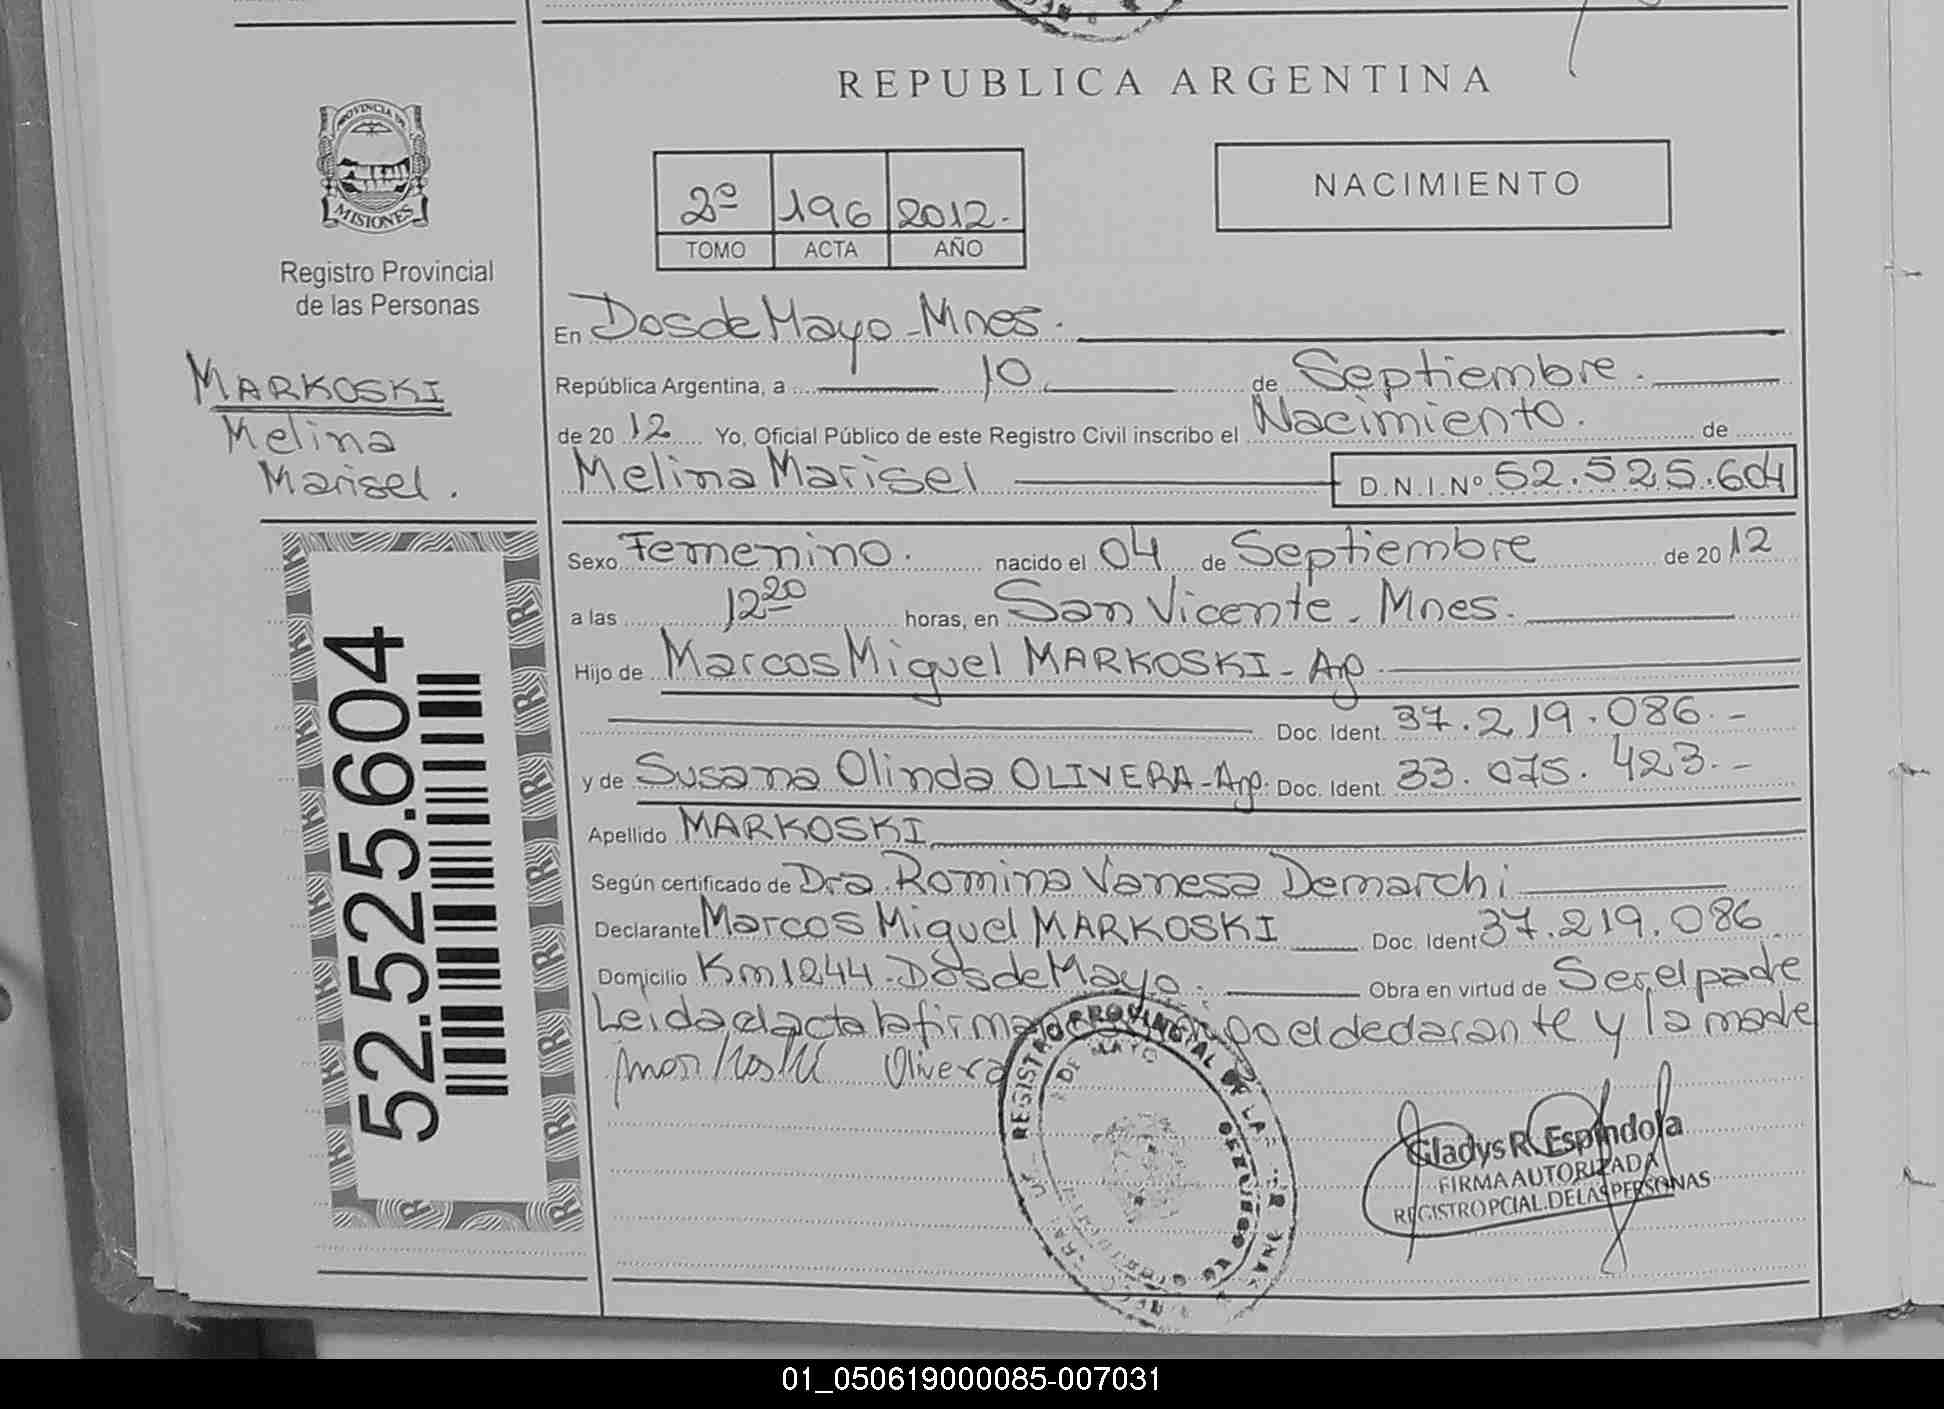 REPUBLICA ARGENTINA
PROVINCIA DE
MISIONES
Registro Provincial
de las Personas
MARKOSKI
Melina
Marisel.
52.525.604
2º 196 2012.
TOMO ACTA AÑO
NACIMIENTO
En Dos de Mayo - Mnes.
República Argentina, a 10 de Septiembre.
de 2012 Yo, Oficial Público de este Registro Civil inscribo el Nacimiento. de
Melina Marisel D.N.I.Nº 52.525.604
Sexo Femenino. nacido el 04 de Septiembre de 2012
a las 12 20 horas, en San Vicente - Mnes.
Hijo de Marcos Miguel MARKOSKI - Arg
Doc. Ident. 37.219.086.-
y de Susana Olinda OLIVERA - Arg. Doc. Ident. 33.075.423.-
Apellido MARKOSKI
Según certificado de Dra. Romina Vanesa Demarchi
Declarante Marcos Miguel MARKOSKI Doc. Ident 37.219.086
Domicilio Km 1244 - Dos de Mayo. Obra en virtud de Ser el padre
Leida el acta la firma el declarante y la madre
Olivera
REGISTRO PROVINCIAL DE LAS
DE MAYO
Gladys R. Espindola
FIRMA AUTORIZADA
REGISTRO PCIAL. DE LAS PERSONAS
01_050619000085-007031